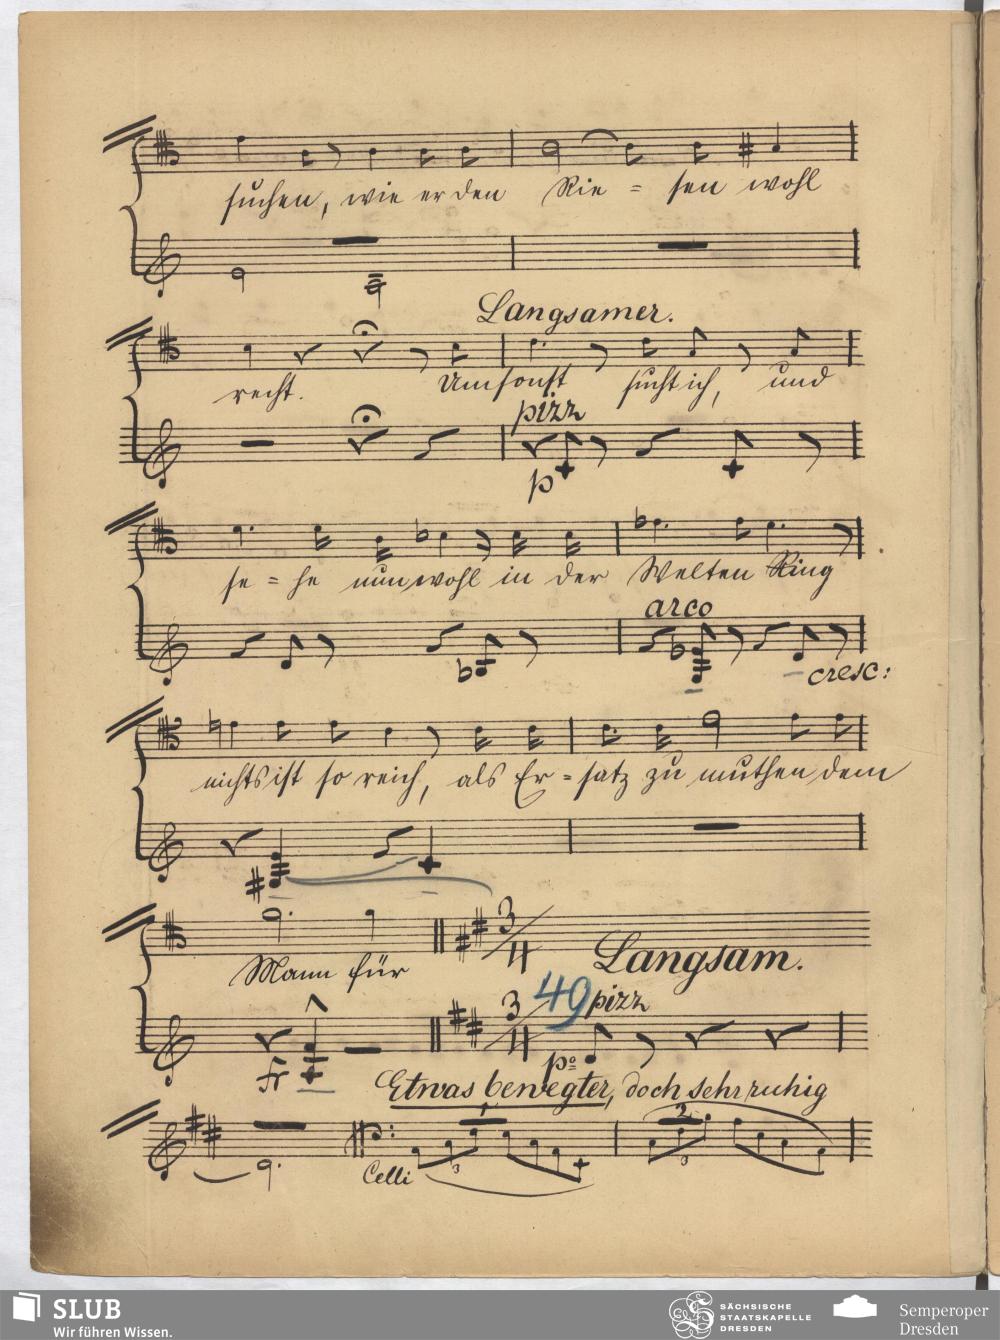 suchen, wie er den Rie = sen wohl
Langsamer.
recht. Umsonst sucht ich, und
pizz
p
se = he nun wohl in der Welten Ring
arco
cresc:
nichts ist so reich, als Er = satz zu muthen dem
Mann für
3/4 Langsam.
49 pizz
3/4
fr
po
Etwas bewegter, doch sehr ruhig
1 2
Celli 3 3
SLUB
Wir führen Wissen.
SÄCHSISCHE
STAATSKAPELLE
DRESDEN
Semperoper
Dresden